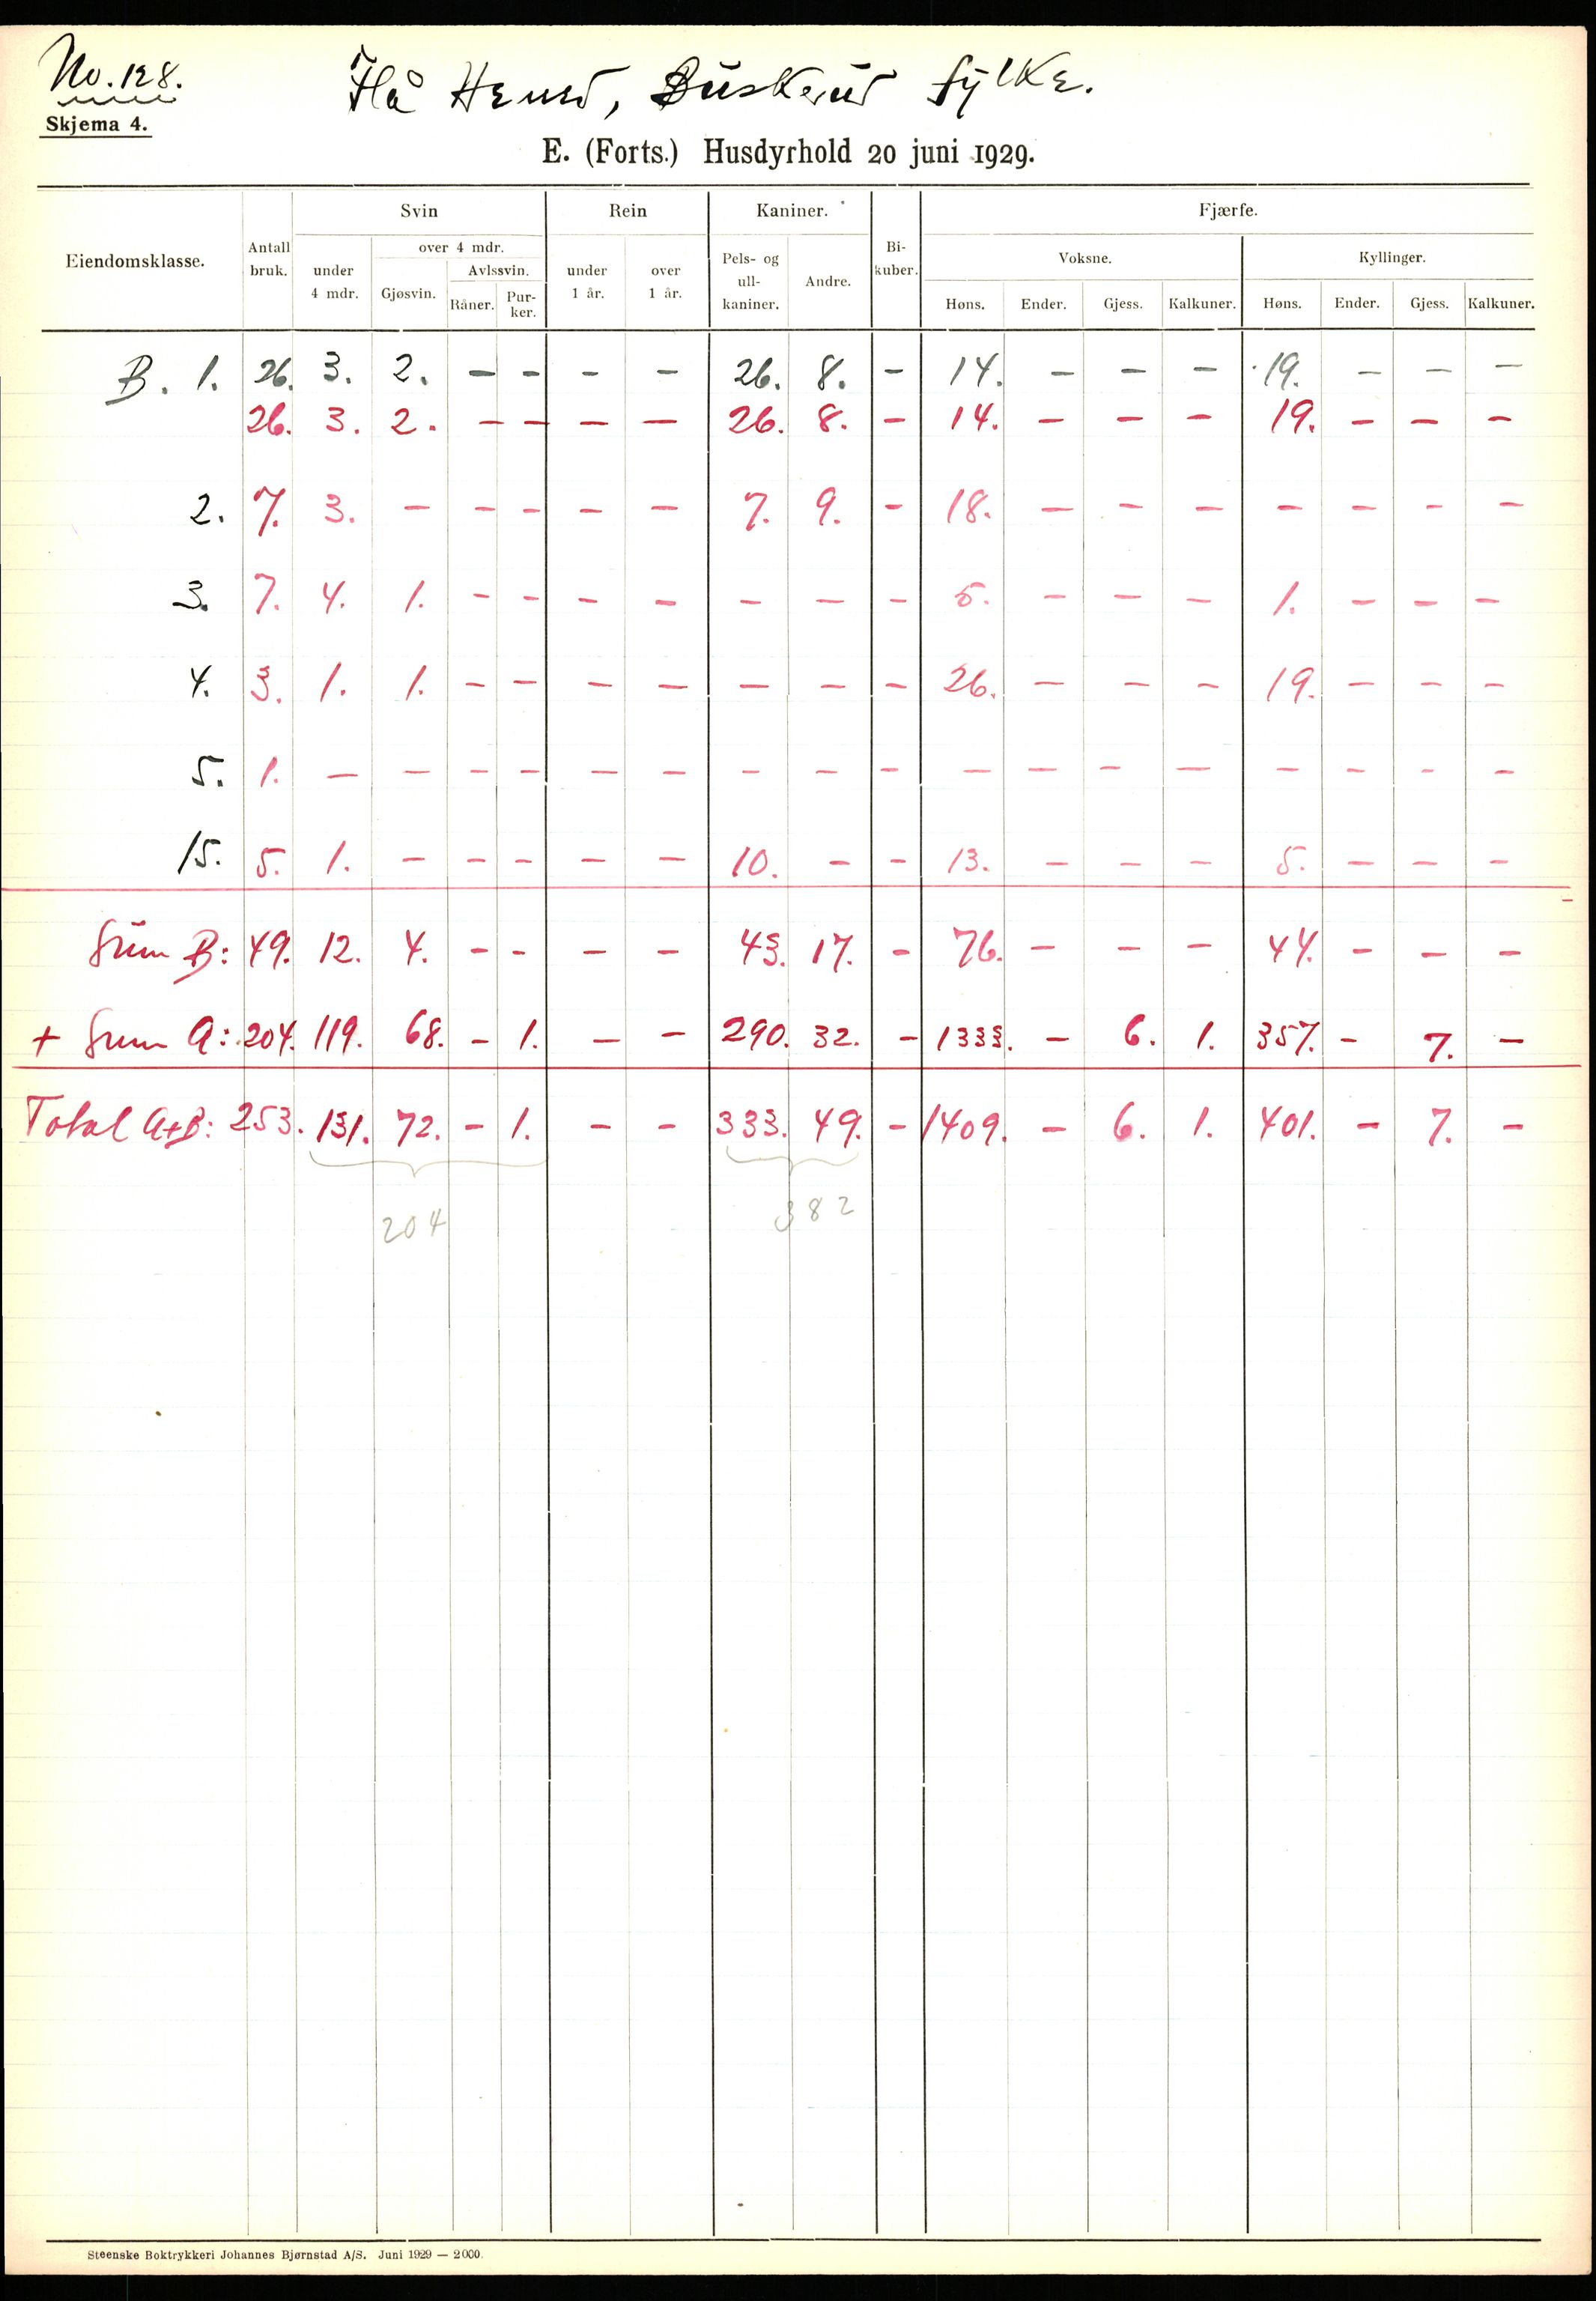 No. 128.
Flå Herred, Buskerud fylke.
Skjema 4.
E. (Forts.) Husdyrhold 20 juni 1929.
Eiendomsklasse. Antall bruk. Svin Rein Kaniner. Bi-kuber. Fjærfe.
under 4 mdr. over 4 mdr. under 1 år. over 1 år. Pels- og ull-kaniner. Andre. Voksne. Kyllinger.
Gjøsvin. Avlssvin.
Råner. Pur-ker. Høns. Ender. Gjess. Kalkuner. Høns. Ender. Gjess. Kalkuner.
B. 1. 26. 3. 2. – – – – 26. 8. – 14. – – – 19. – – –
26. 3. 2. – – – – 26. 8. – 14. – – – 19. – – –
2. 7. 3. – – – – – 7. 9. – 18. – – – – – – –
3. 7. 4. 1. – – – – – – – 5. – – – 1. – – –
4. 3. 1. 1. – – – – – – – 26. – – – 19. – – –
5. 1. – – – – – – – – – – – – – – – – –
15. 5. 1. – – – – – 10. – – 13. – – – 5. – – –
Sum B: 49. 12. 4. – – – – 43. 17. – 76. – – – 44. – – –
+ Sum A: 204. 119. 68. – 1. – – 290. 32. – 1333. – 6. 1. 357. – 7. –
Total A+B: 253. 131. 72. – 1. – – 333. 49. – 1409. – 6. 1. 401. – 7. –
204 382
Steenske Boktrykkeri Johannes Bjørnstad A/S. Juni 1929 — 2000.